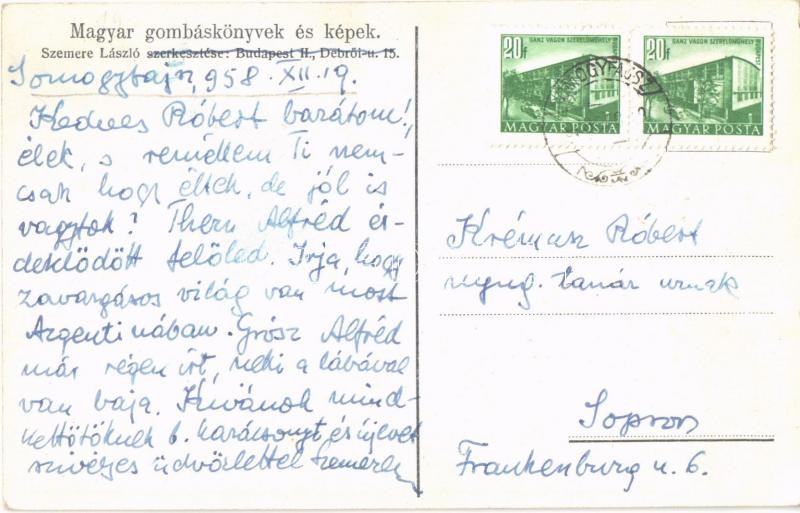 Magyar gombáskönyvek és képek.
Szemere László szerkesztése: Budapest II., Debrői-u. 15.
Somogyfajsz, 958. XII. 19.
Kedves Róbert barátom!,
élek, s remélem Ti nem-
csak hogy éltek, de jól is
vagytok? Thern Alfréd ér-
deklődött felőled. Irja, hogy
zavargásos világ van most
Argentinában. Grósz Alfréd
már régen irt, neki a lábával
van baja. Kivánok mind-
kettőtöknek b. karácsonyt és újévet
szivélyes üdvözlettel Szemere L
20f
GANZ VAGON SZERELŐMŰHELY
BUDAPEST
MAGYAR POSTA
20f
GANZ VAGON SZERELŐMŰHELY
BUDAPEST
MAGYAR POSTA
SOMOGYFAJSZ
Róbert
nyug. tanár urnak
Sopron
Frankenburg u. 6.